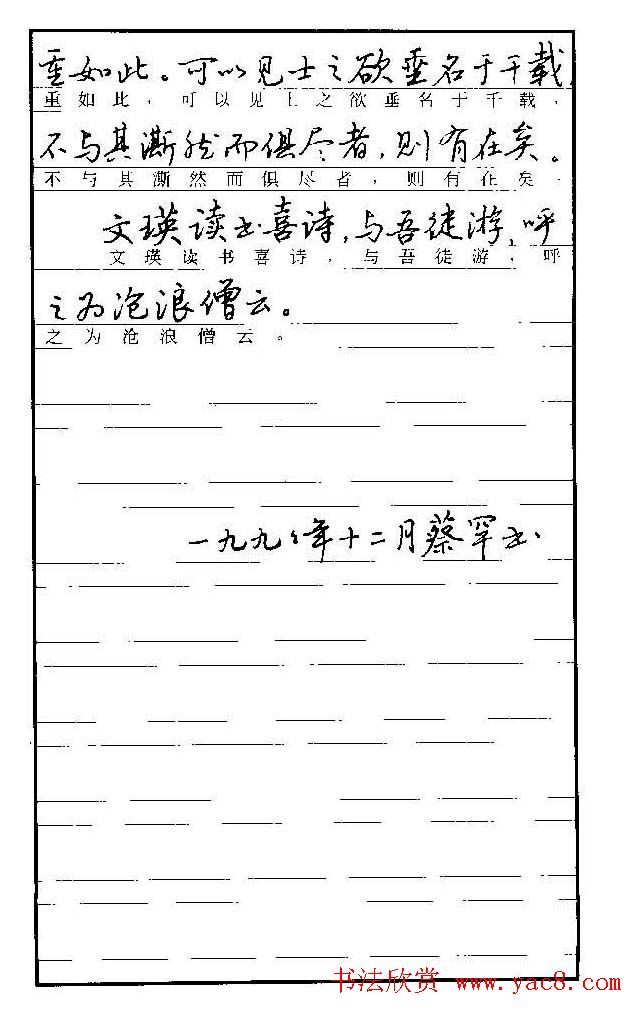 重如此。可以见士之欲垂名于千载,
重如此，可以见士之欲垂名于千载，
不与其澌然而俱尽者,则有在矣。
不与其澌然而俱尽者，则有在矣。
文瑛读书喜诗,与吾徒游,呼
文瑛读书喜诗，与吾徒游，呼
之为沧浪僧云。
之为沧浪僧云。
一九九〻年十二月蔡罕书
书法欣赏 www.yac8.com